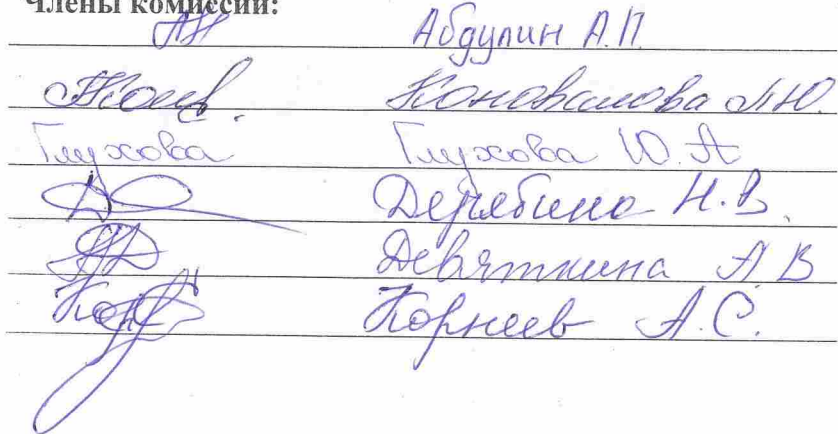 Члены комиссии:
Абдулин А.П.
Коновалова Л.Ю.
Глухова Глухова Ю.А
Дерябина Н.В.
Девяткина А В
Корнеев А.С.